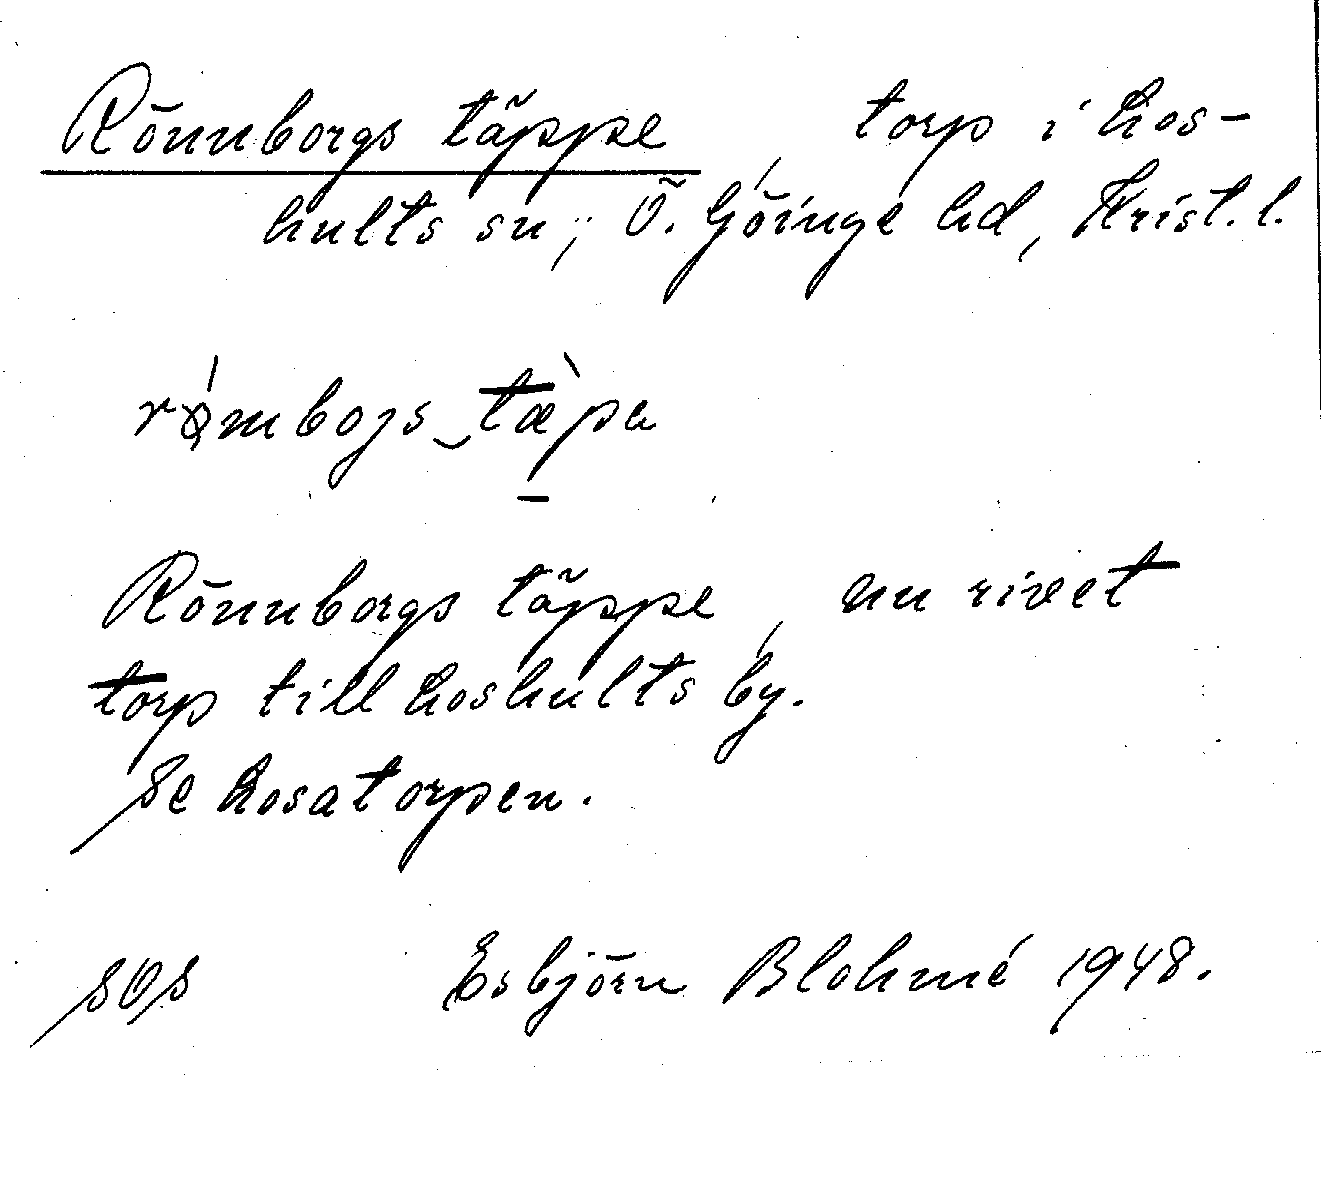 Rönnborgs täppe, torp i Los-
hults sn, Ö. Göinge hd, Krist. l.
rǿmbojs‿tæ̀pa
Rönnborgs täppe, nu rivet
torp till Loshults by.
Se Losatorpen.
SOS Esbjörn Blohmé 1948.